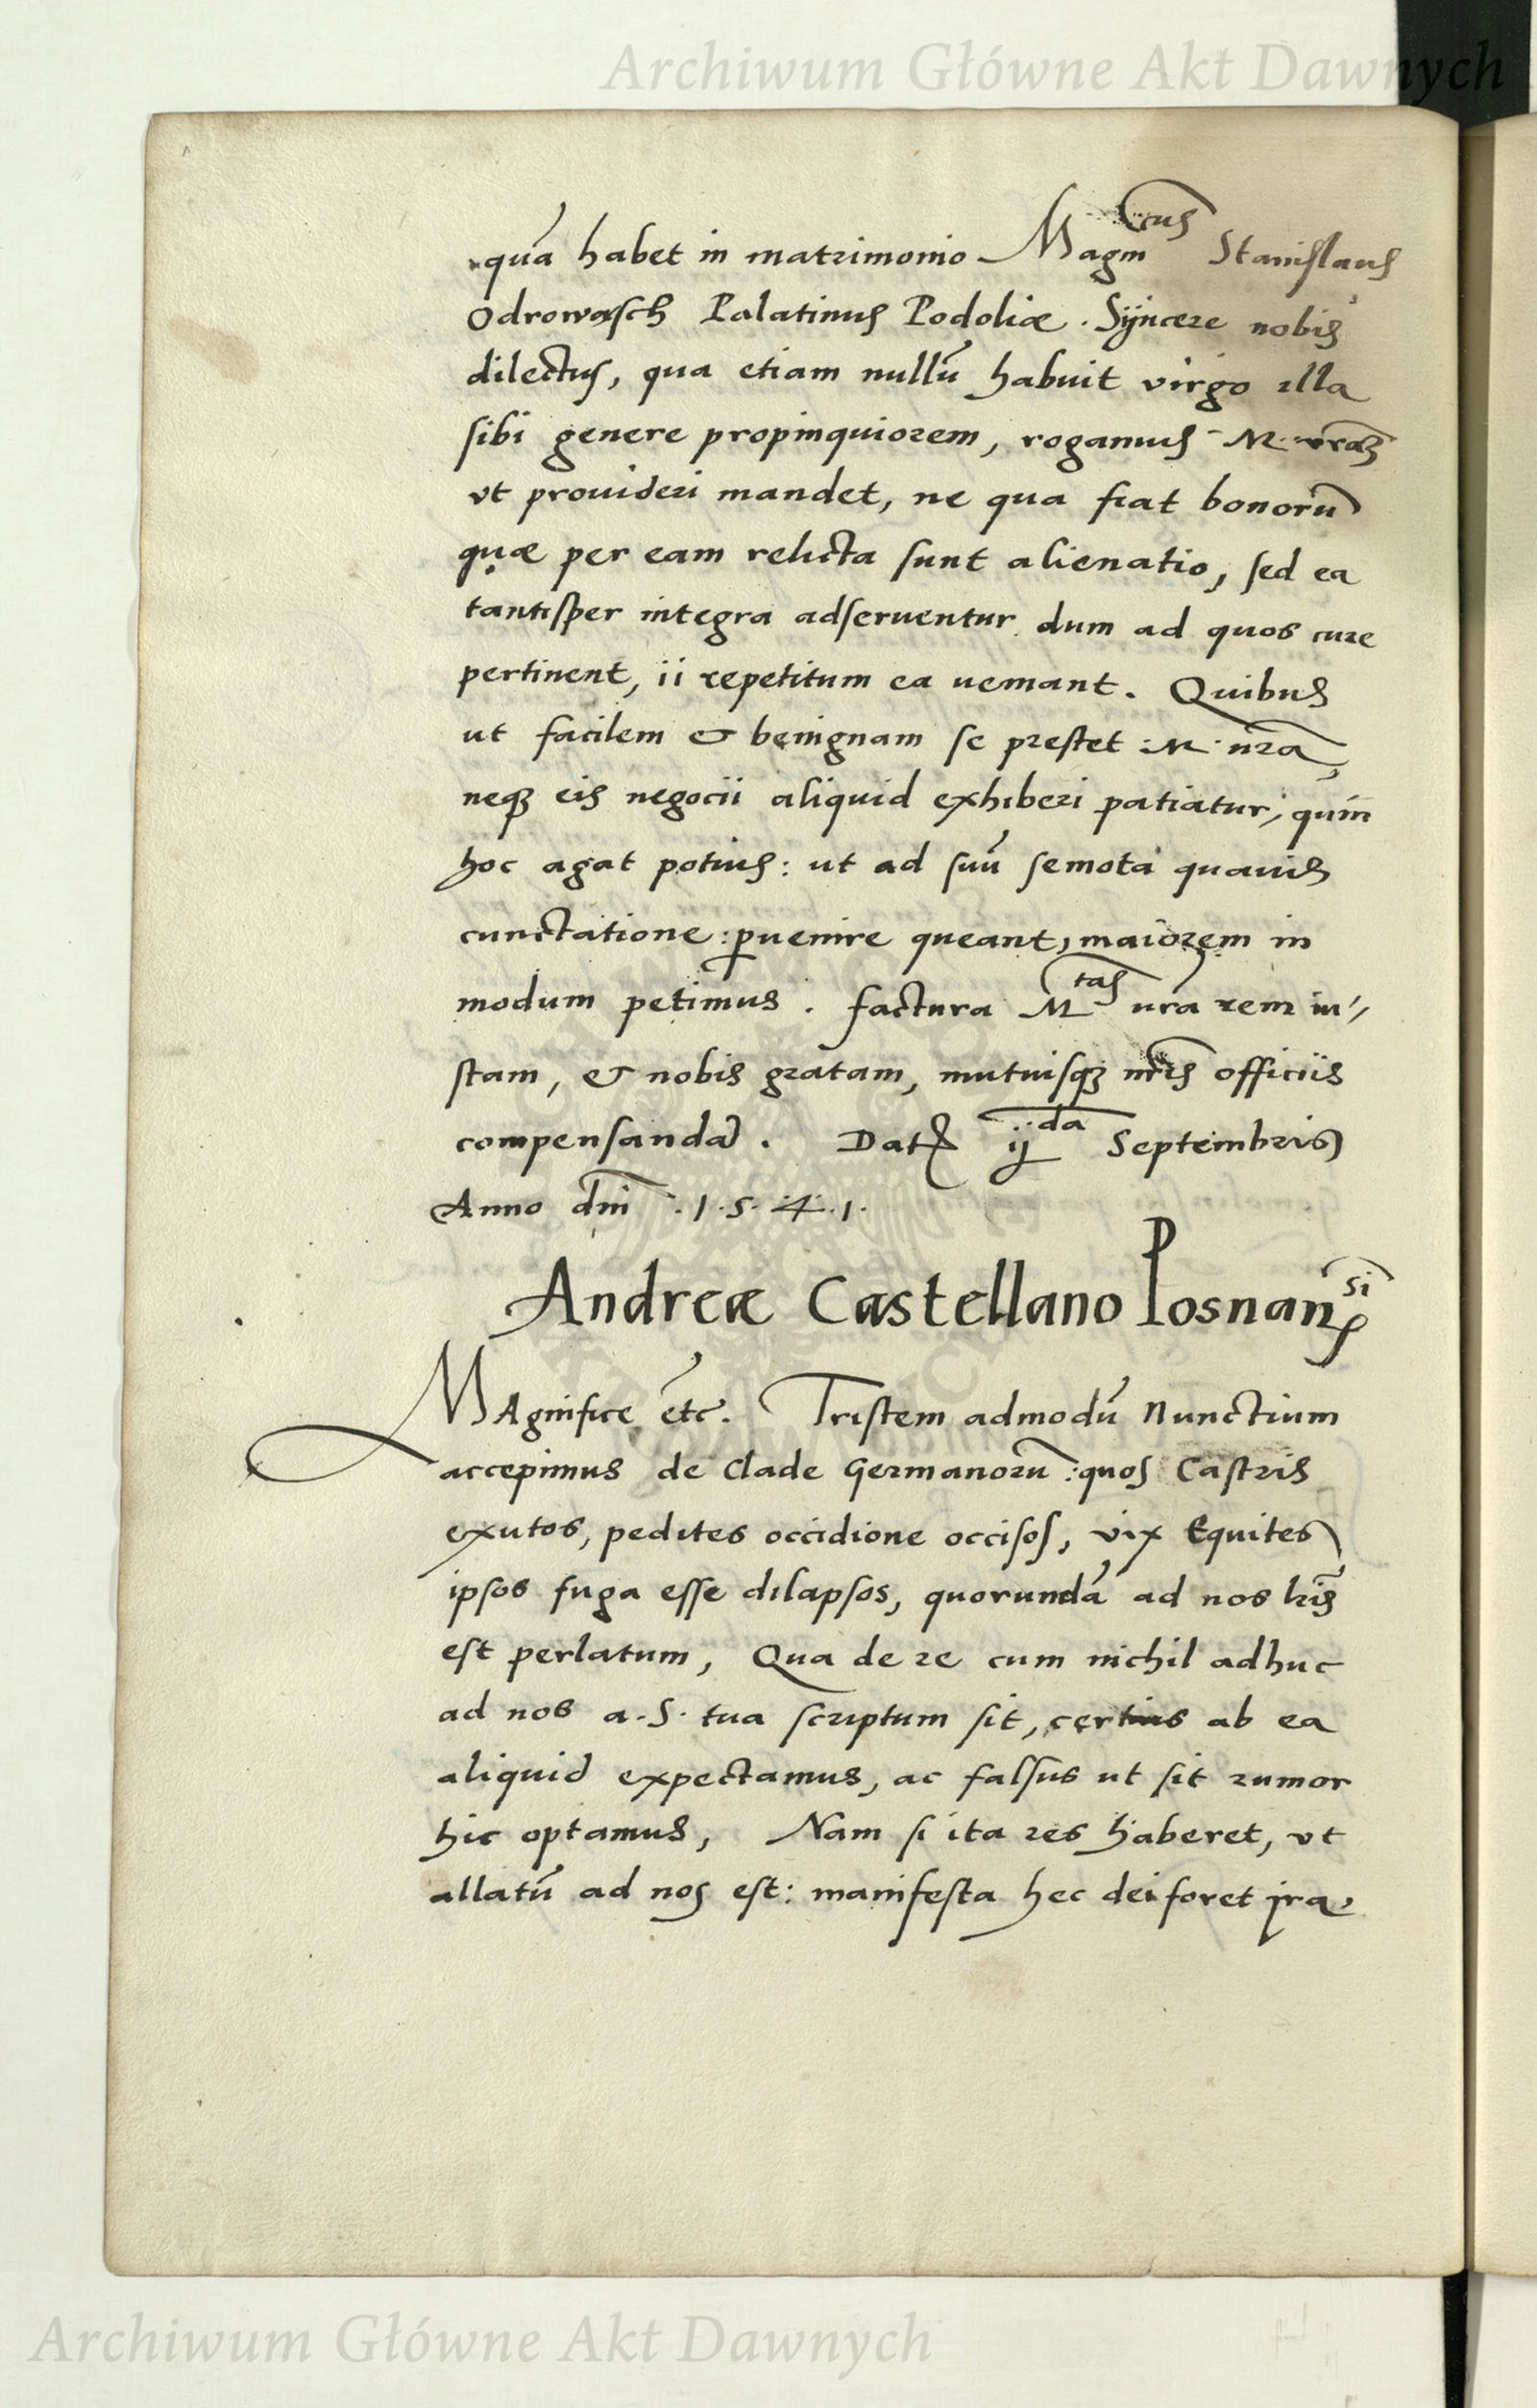 Archiwum Główne Akt Dawnych
quā habet in matrimonio Magnᶜᵘˢ Stanislaus
Odrowasch Palatinus Podoliæ. Sÿncere nobis
dilectus, qua etiam nullū habuit virgo illa
sibi genere propinquiorem, rogamus M. vraꝫ
vt prouideri mandet, ne qua fiat bonorū
quæ per eam relicta sunt alienatio, sed ea
tantisper integra adseruentur dum ad quos iure
pertinent, ii repetitum ea ueniant. Quibus
ut facilem & benignam se prestet M. vra,
neqꝫ eis negocii aliquid exhiberi patiatur, quin
hoc agat potius: ut ad suū semota quauis
cunctatione: ꝑuenire queant, maiorem in
modum petimus. factura Mᵗᵃˢ vra rem iu⸗
stam, & nobis gratam, mutuisqꝫ nris officiis
compensandā. Datꝭ ijᵈᵃ Septembris
Anno dni .1.5.4.1.
Andreæ Castellano Posnanˢⁱ
MAgnifice etc. Tristem admodū Nunctium
accepimus de Clade Germanorū: quos Castris
exutos, pedites occidione occisos, vix Equites
ipsos fuga esse dilapsos, quorundā ad nos lris
est perlatum, Qua de re cum nichil adhuc
ad nos a. S. tua scriptum sit, certius ab ea
aliquid expectamus, ac falsus ut sit rumor
hic optamus, Nam si ita res haberet, vt
allatū ad nos est: manifesta hec dei foret ira,
Archiwum Główne Akt Dawnych